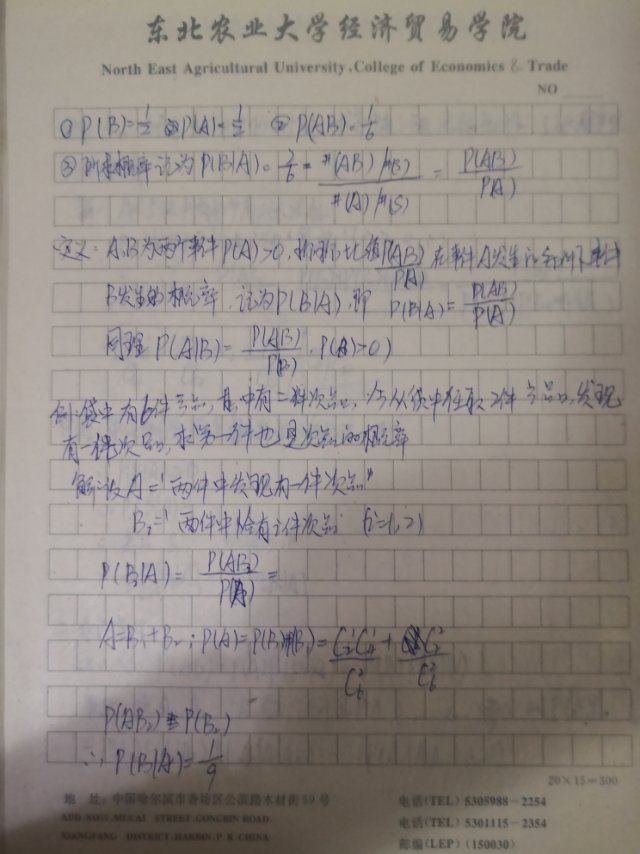 东北农业大学经济贸易学院
North East Agricultural University.College of Economics & Trade
NO
① P(B)=1/2 ② P(A)=1/2 ② P(AB)=1/6
③ 所求概率记为 P(B|A)=2/6=#(AB)/#(S)/#(A)/#(S)=P(AB)/P(A)
定义:A,B为两个事件P(A)>0,称比值P(AB)/P(A)在事件A发生的条件下事件
B发生的概率,记为P(B|A),即 P(B|A)=P(AB)/P(A)
同理 P(A|B)=P(AB)/P(B),P(A)>0)
例:袋中有6件产品,其中有二件次品,今从袋中任取2件产品,发现
有一件次品,求另一件也是次品的概率
解:设A="两件中发现有一件次品"
Bi="两件中恰有i件次品" (i=1,2)
P(B₂|A)=P(AB₂)/P(A)=
A=B₁+B₂;P(A)=P(B₁+B₂)=C₂¹C₄¹/C₆²+C₂²/C₆²
P(AB₂)=P(B₂)
∴P(B₂|A)=1/9
20×15=300
地 址:中国哈尔滨市香坊区公滨路木材街59号
电话(TEL) 5305988-2254
ADD:NO59.MUCAI STREET.GONGBIN ROAD
电话(TEL) 5301115-2354
XIANGFANG DISTRICT.HARBIN.P R CHINA
邮编(LEP) (150030)